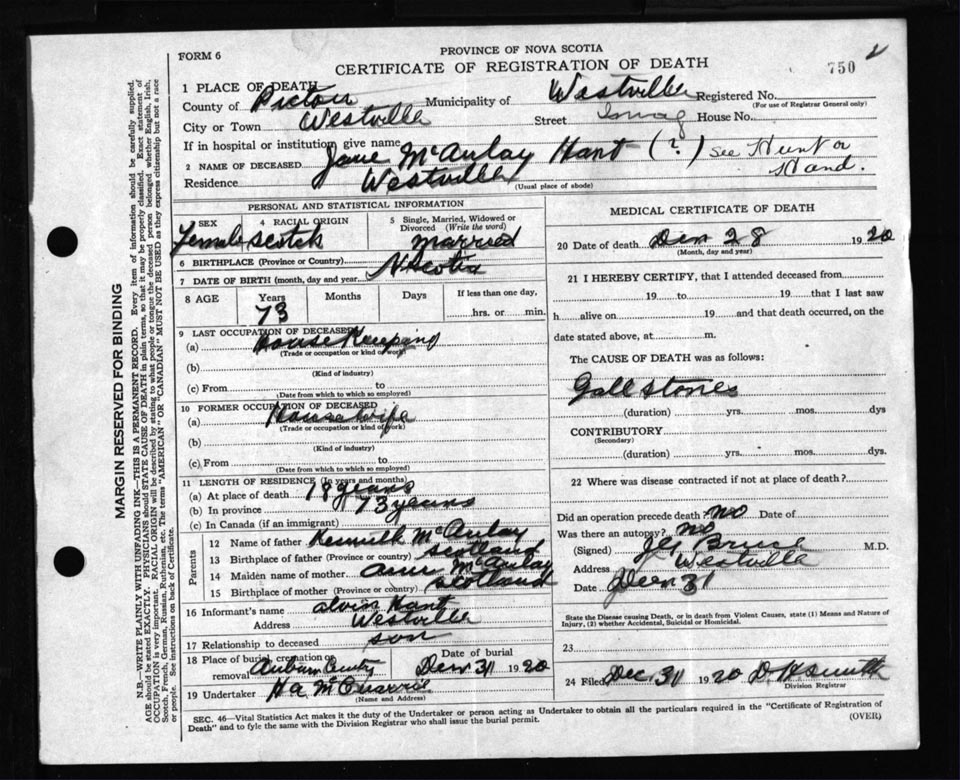 FORM 6
PROVINCE OF NOVA SCOTIA
CERTIFICATE OF REGISTRATION OF DEATH
750
1 PLACE OF DEATH
County of Pictou Municipality of Westville Registered No.
(For use of Registrar General only)
City or Town Westville Street House No.
If in hospital or institution, give name
2 NAME OF DECEASED Jane McAulay Hant (?) see Hunt or Hand.
Residence Westville
(Usual place of abode)
PERSONAL AND STATISTICAL INFORMATION
3 SEX Female
4 RACIAL ORIGIN Scotch
5 Single, Married, Widowed or Divorced (Write the word) Married
6 BIRTHPLACE (Province or Country) N Scotia
7 DATE OF BIRTH (month, day and year)
8 AGE Years Months Days If less than one day,
73 hrs. or min.
9 LAST OCCUPATION OF DECEASED
(a) House Keeping
(Trade or occupation or kind of work)
(b)
(Kind of industry)
(c) From to
(Date from which to which so employed)
10 FORMER OCCUPATION OF DECEASED
(a) Housewife
(Trade or occupation or kind of work)
(b)
(Kind of industry)
(c) From to
(Date from which to which so employed)
11 LENGTH OF RESIDENCE (In years and months)
(a) At place of death 18 years
(b) In province 73 years
(c) In Canada (if an immigrant)
Parents
12 Name of father Kenneth McAulay
13 Birthplace of father (Province or country) Scotland
14 Maiden name of mother Ann McAulay
15 Birthplace of mother (Province or country) Scotland
16 Informant's name Alvin Hant
Address Westville
17 Relationship to deceased son
18 Place of burial, cremation or removal Auburn Cemty Date of burial Decr 31 1920
19 Undertaker H a McQuarrie
(Name and Address)
MEDICAL CERTIFICATE OF DEATH
20 Date of death Decr 28 1920
(Month, day and year)
21 I HEREBY CERTIFY, that I attended deceased from
19 to 19 that I last saw
h alive on 19 and that death occurred, on
date stated above, at m.
The CAUSE OF DEATH was as follows:
Gall stones
(duration) yrs. mos. dys
CONTRIBUTORY
(Secondary)
(duration) yrs. mos. dys.
22 Where was disease contracted if not at place of death?
Did an operation precede death? No Date of
Was there an autopsy? No
(Signed) Bruce M.D.
Address Westville
Date Decr 31
State the Disease causing Death, or in death from Violent Causes, state (1) Means and Nature of
Injury, (2) whether Accidental, Suicidal or Homicidal.
23
24 Filed Dec. 31 1920 D. H Smith
Division Registrar
SEC. 46—Vital Statistics Act makes it the duty of the Undertaker or person acting as Undertaker to obtain all the particulars required in the "Certificate of Registration of
Death" and to fyle the same with the Division Registrar who shall issue the burial permit.
(OVER)
MARGIN RESERVED FOR BINDING
N.B.—WRITE PLAINLY WITH UNFADING INK—THIS IS A PERMANENT RECORD. Every item of information should be carefully supplied.
AGE should be stated EXACTLY. PHYSICIANS should STATE CAUSE OF DEATH in plain terms, so that it may be properly classified. Exact statement of
OCCUPATION is very important. RACIAL ORIGIN will be described by stating to what people or tongue the deceased person belonged whether English, Irish,
Scotch, French, German, Russian, Ruthenian, etc. The terms "AMERICAN" OR "CANADIAN" MUST NOT BE USED as they express citizenship but not a race
or people. See instructions on back of Certificate.